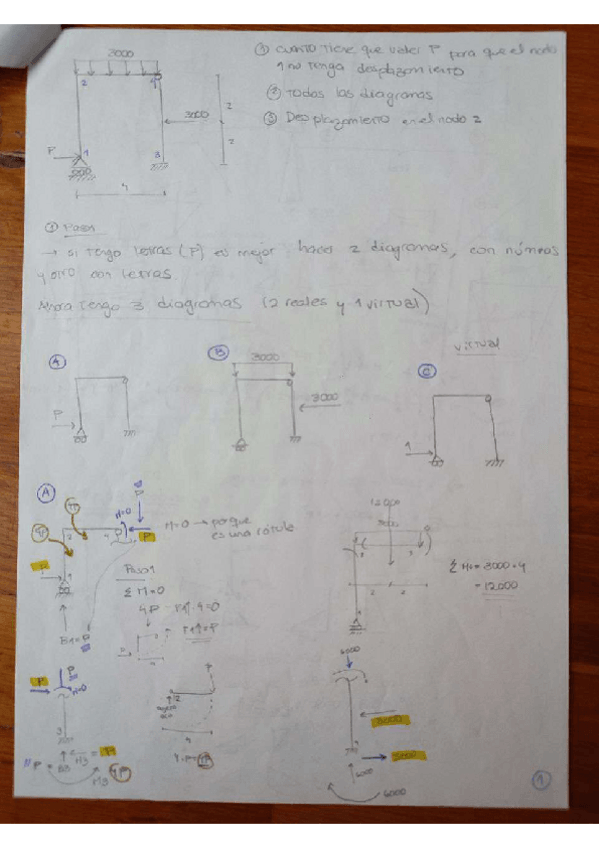 3000
① CUANTO tiene que valer P para que el nodo
1 no tenga desplazamiento
② Todos los diagramas
③ Desplazamiento en el nodo 2
2
4
3000
2
2
P
1
3
4
① Paso 1
→ si tengo letras (P) es mejor hacer 2 diagramas, con números
y otro con letras.
Ahora tengo 3 diagramas (2 reales y 1 virtual)
VIRTUAL
A
B
3000
C
P
3000
1
A
M=0
P
M=0 → porque
es una rótula
12000
3000
Paso 1
Σ M=0
4P
P
2
2
= 12.000
P
M=0
6000
3000
3000
4
6000
6000
M3
4P
1